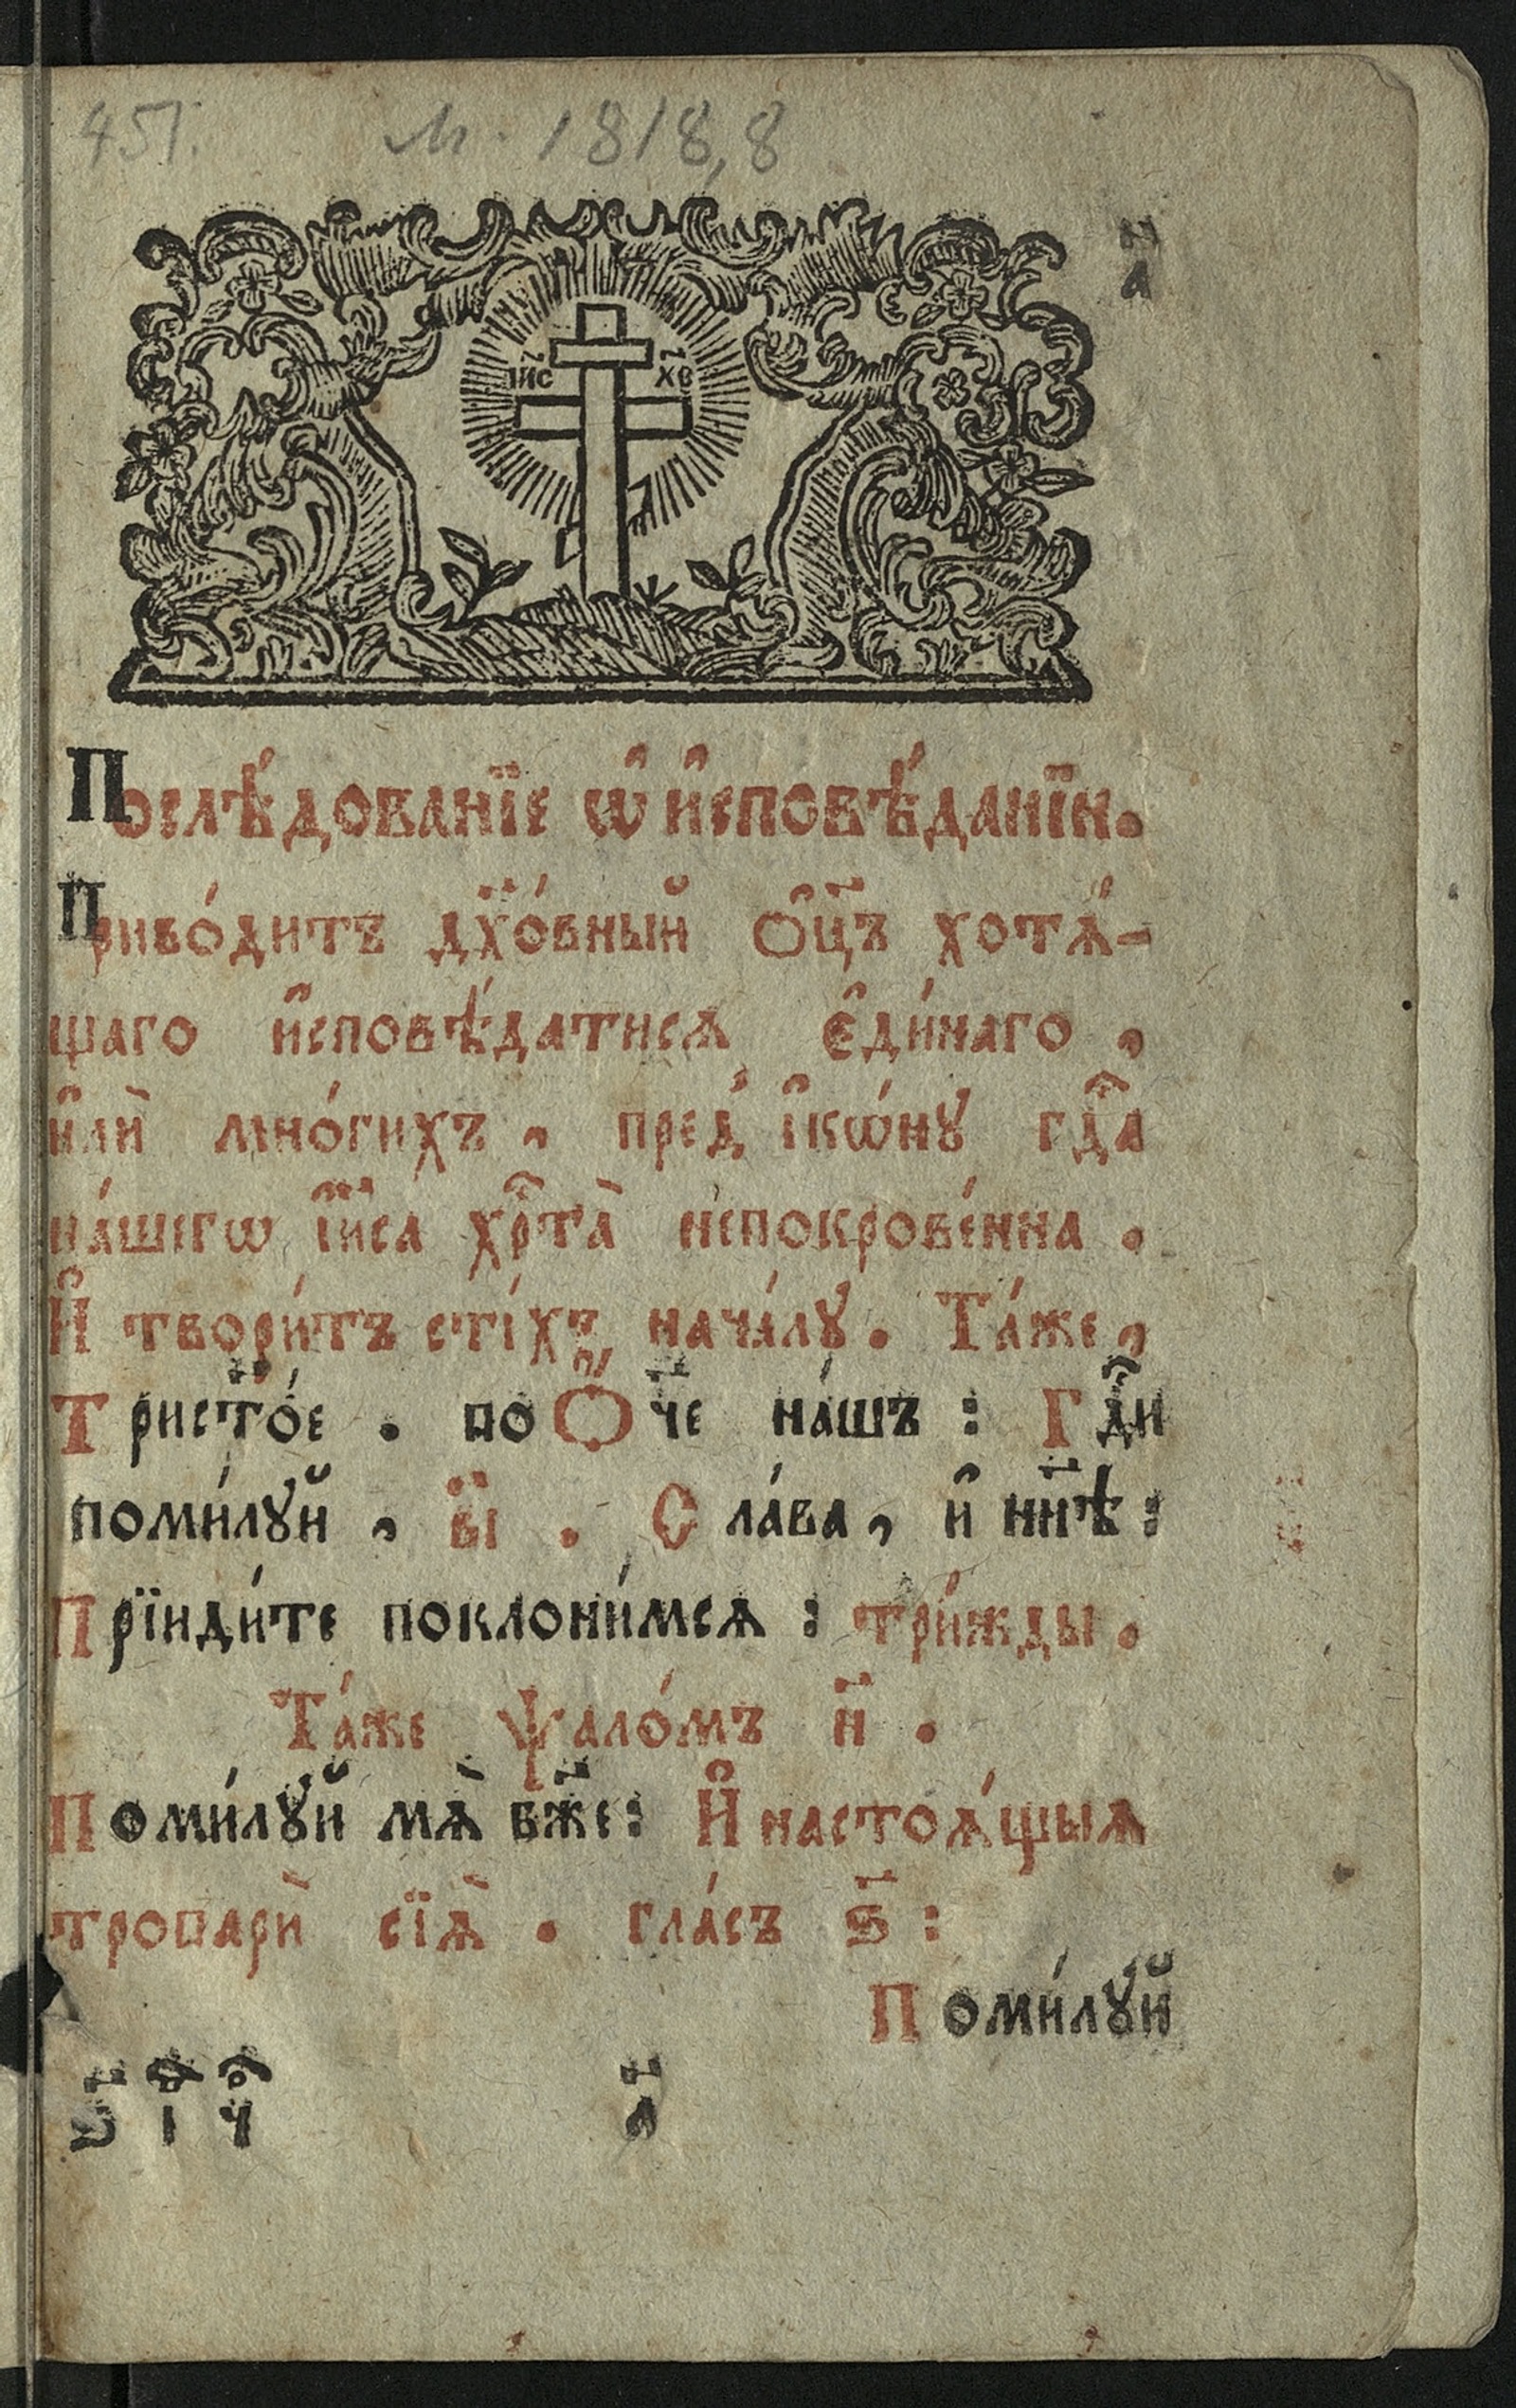 451. М. 1818,8
а҃
І҃ИС Х҃В
Послѣ́дованїе ѡ҆ и҆сповѣ́данїи.
Приво́дитъ дх҃о́вный ѻ҆ц҃ъ хотѧ́-
щаго и҆сповѣ́датисѧ є҆ди́наго ,
и҆лѝ мно́гихъ , пред̾ і҆кѡ́нꙋ гдⷭ҇а
на́шегѡ і҆и҃са хрⷭ҇та̀ непокрове́нна .
И҆ твори́тъ сті́хъ нача́лꙋ. Та́же ,
Трист҃о́е . по Ѻ҆́ч҃е на́шъ : Гдⷭ҇и
поми́лꙋй , в҃і . Сла́ва , и҆ нн҃ѣ :
Прїиди́те поклони́мсѧ : три́жды .
Та́же ѱало́мъ н҃ .
Поми́лꙋй мѧ̀ бж҃е : И҆ настоѧ́щыѧ
тропарѝ сїѧ̀ . гла́съ ѕ҃ :
Поми́лꙋй